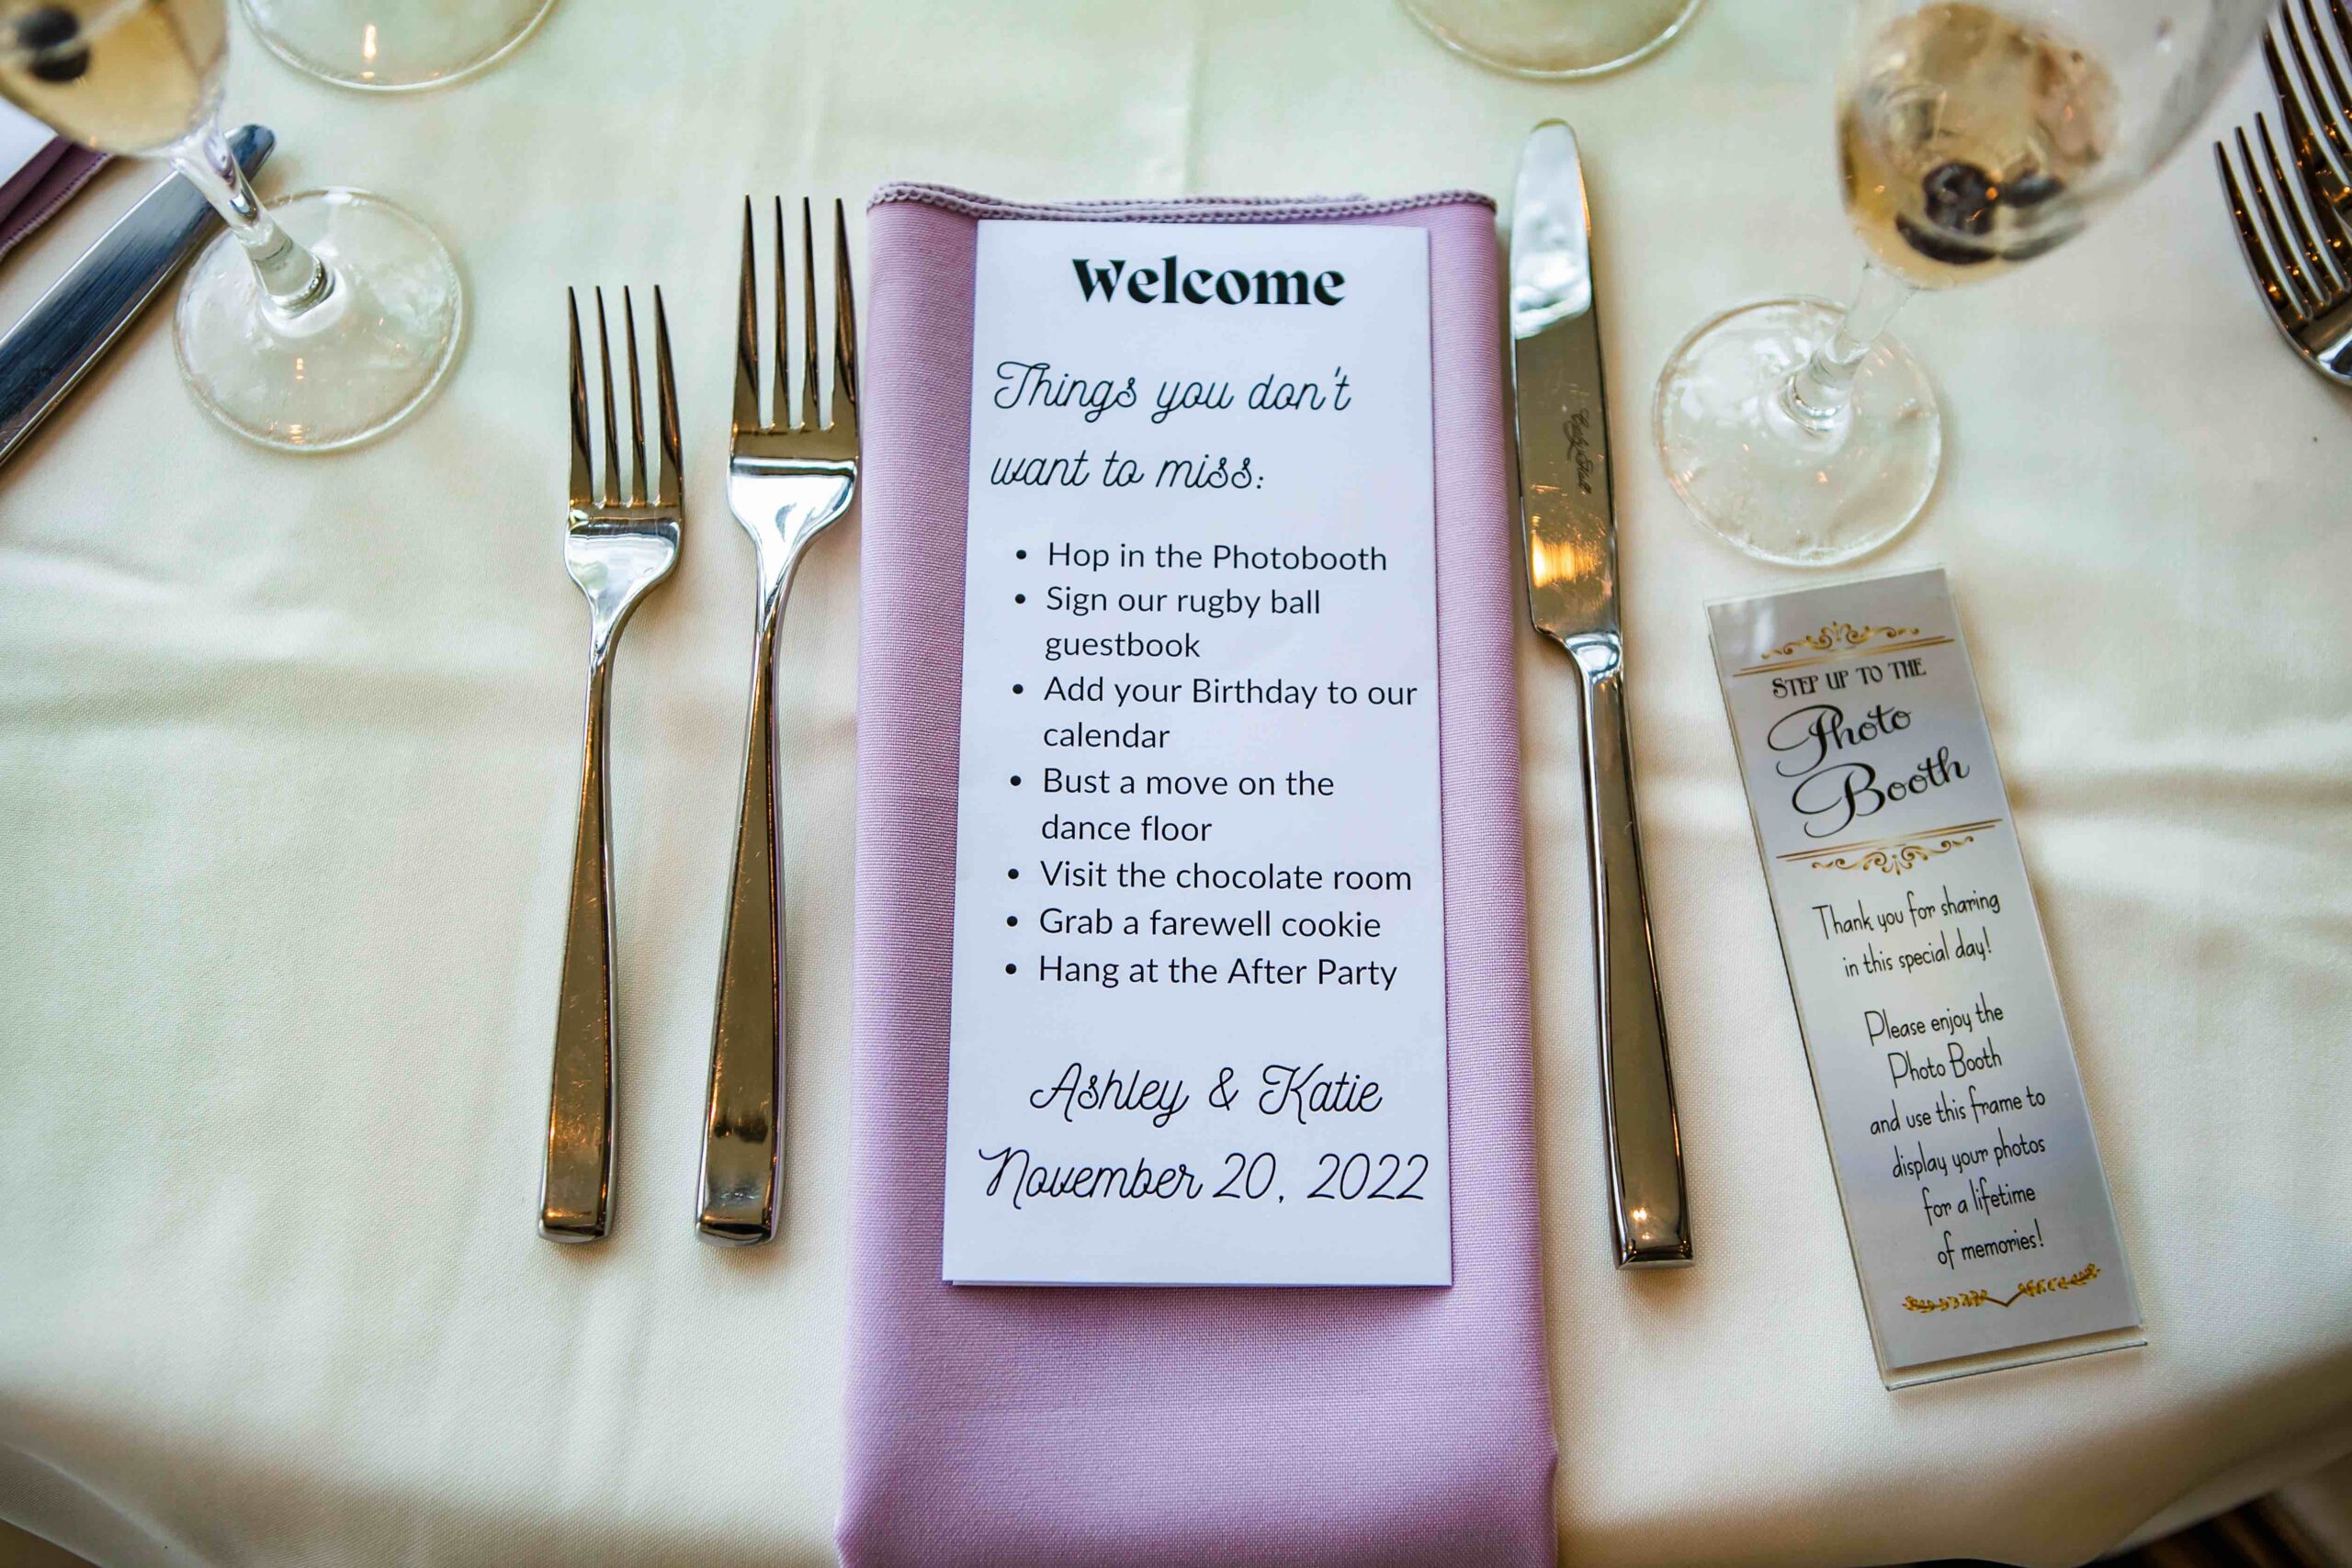 Welcome
Things you don't
want to miss:
• Hop in the Photobooth
• Sign our rugby ball
guestbook
• Add your Birthday to our
calendar
• Bust a move on the
dance floor
• Visit the chocolate room
• Grab a farewell cookie
• Hang at the After Party
Ashley & Katie
November 20, 2022
STEP UP TO THE
Photo
Booth
Thank you for sharing
in this special day!
Please enjoy the
Photo Booth
and use this frame to
display your photos
for a lifetime
of memories!